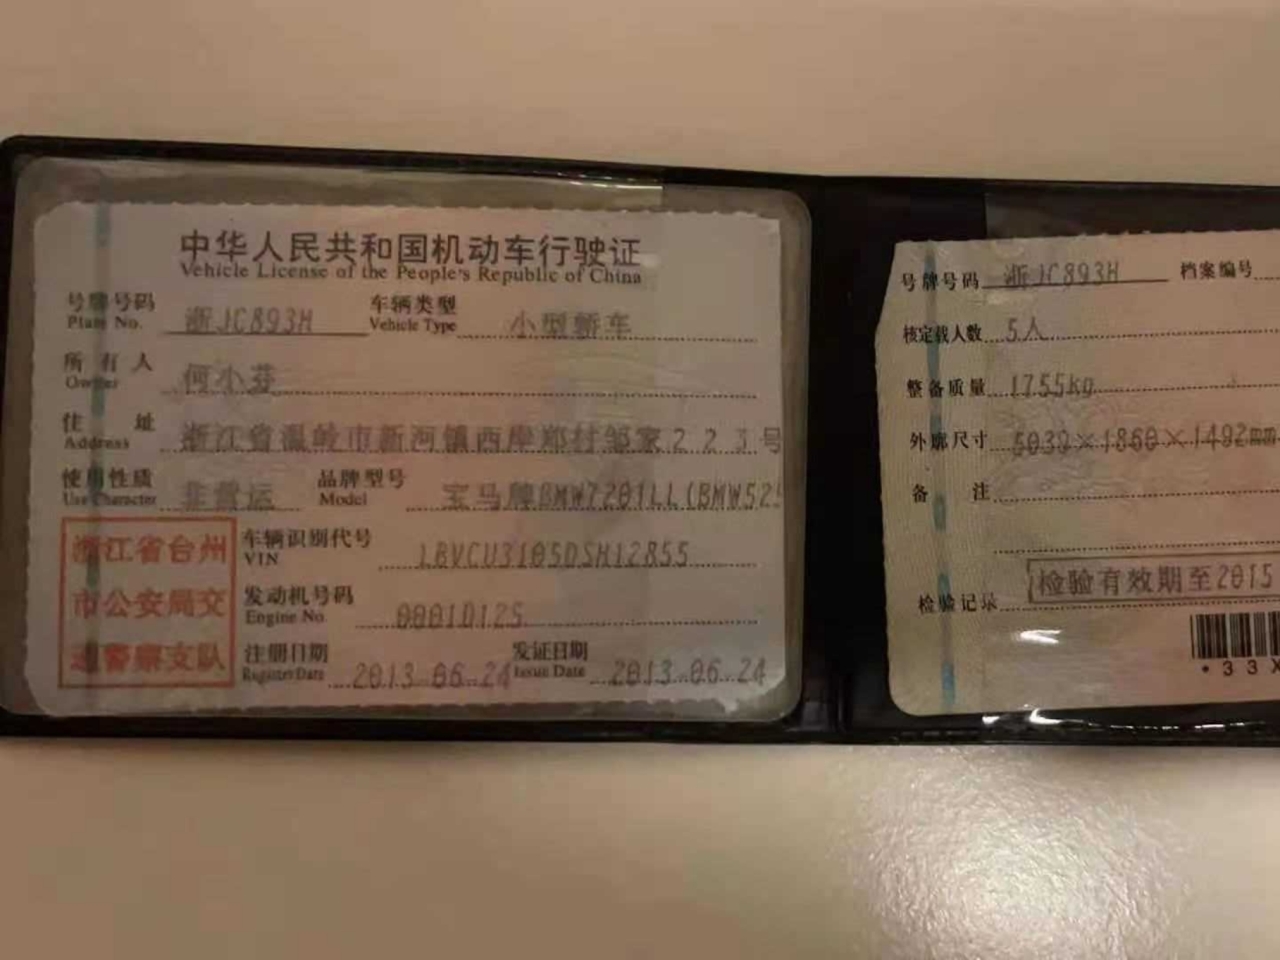 中华人民共和国机动车行驶证
Vehicle License of the People's Republic of China
号牌号码 浙JC893H 车辆类型 小型轿车
Plate No. Vehicle Type
所有人 何小芬
Owner
住址 浙江省温岭市新河镇西岸郑村邹家223号
Address
使用性质 非营运 品牌型号 宝马牌BMW7201LL(BMW525
Use Character Model
浙江省台州
市公安局交
通警察支队
车辆识别代号 LBVCU3105DSH12855
VIN
发动机号码 00010125
Engine No.
注册日期 2013-06-24 发证日期 2013-06-24
Register Date Issue Date
号牌号码 浙JC893H 档案编号
核定载人数 5人
整备质量 1755kg
外廓尺寸 5039×1860×1492mm
备注
检验记录 检验有效期至2015
*33X